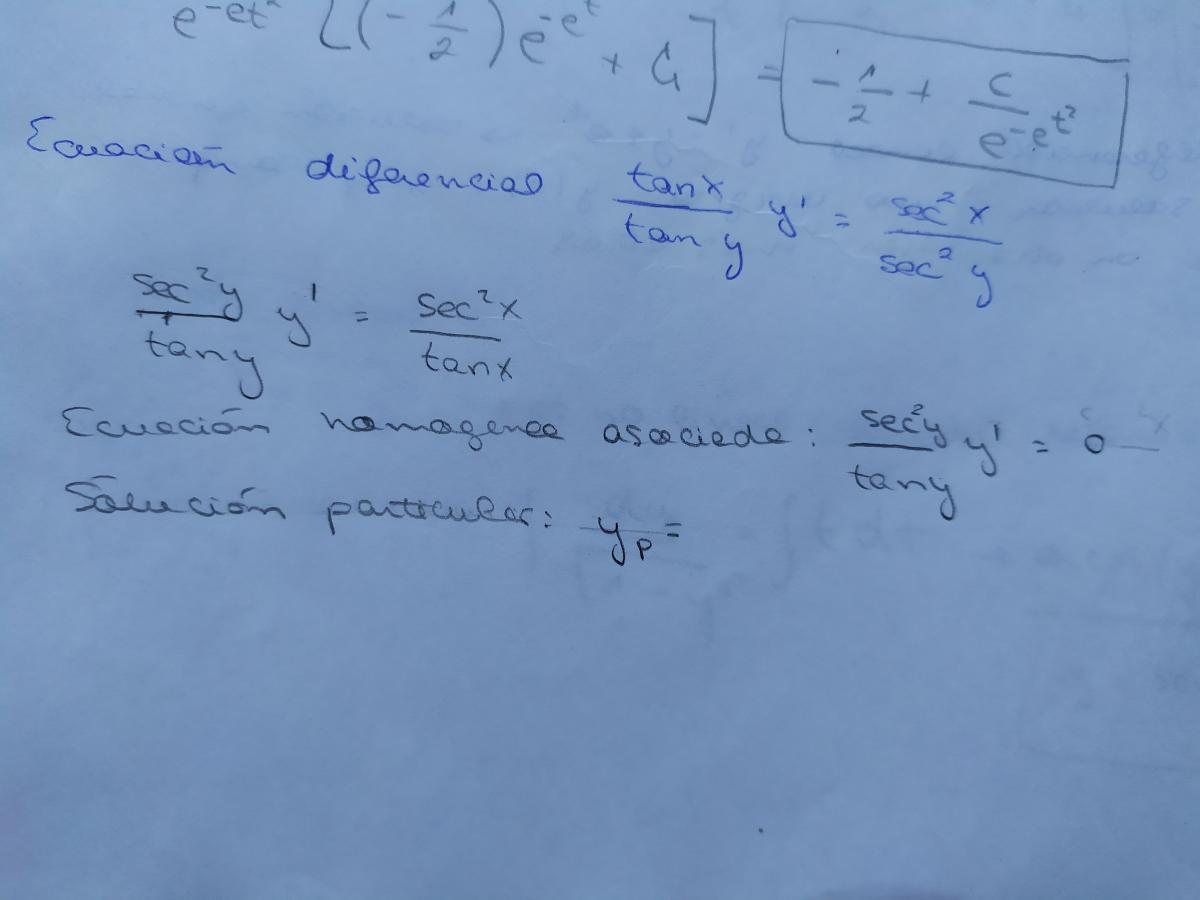 e^{-et^2} [(-1/2) e^{-e^t} + C_1] = -1/2 + C/(e^{-e t^2})
Ecuación diferencial tan x/tan y y' = sec² x/sec² y
sec² y/tan y y' = sec² x/tan x
Ecuación homogenea asociada: sec² y/tan y y' = 0
Solución particular: y_p =